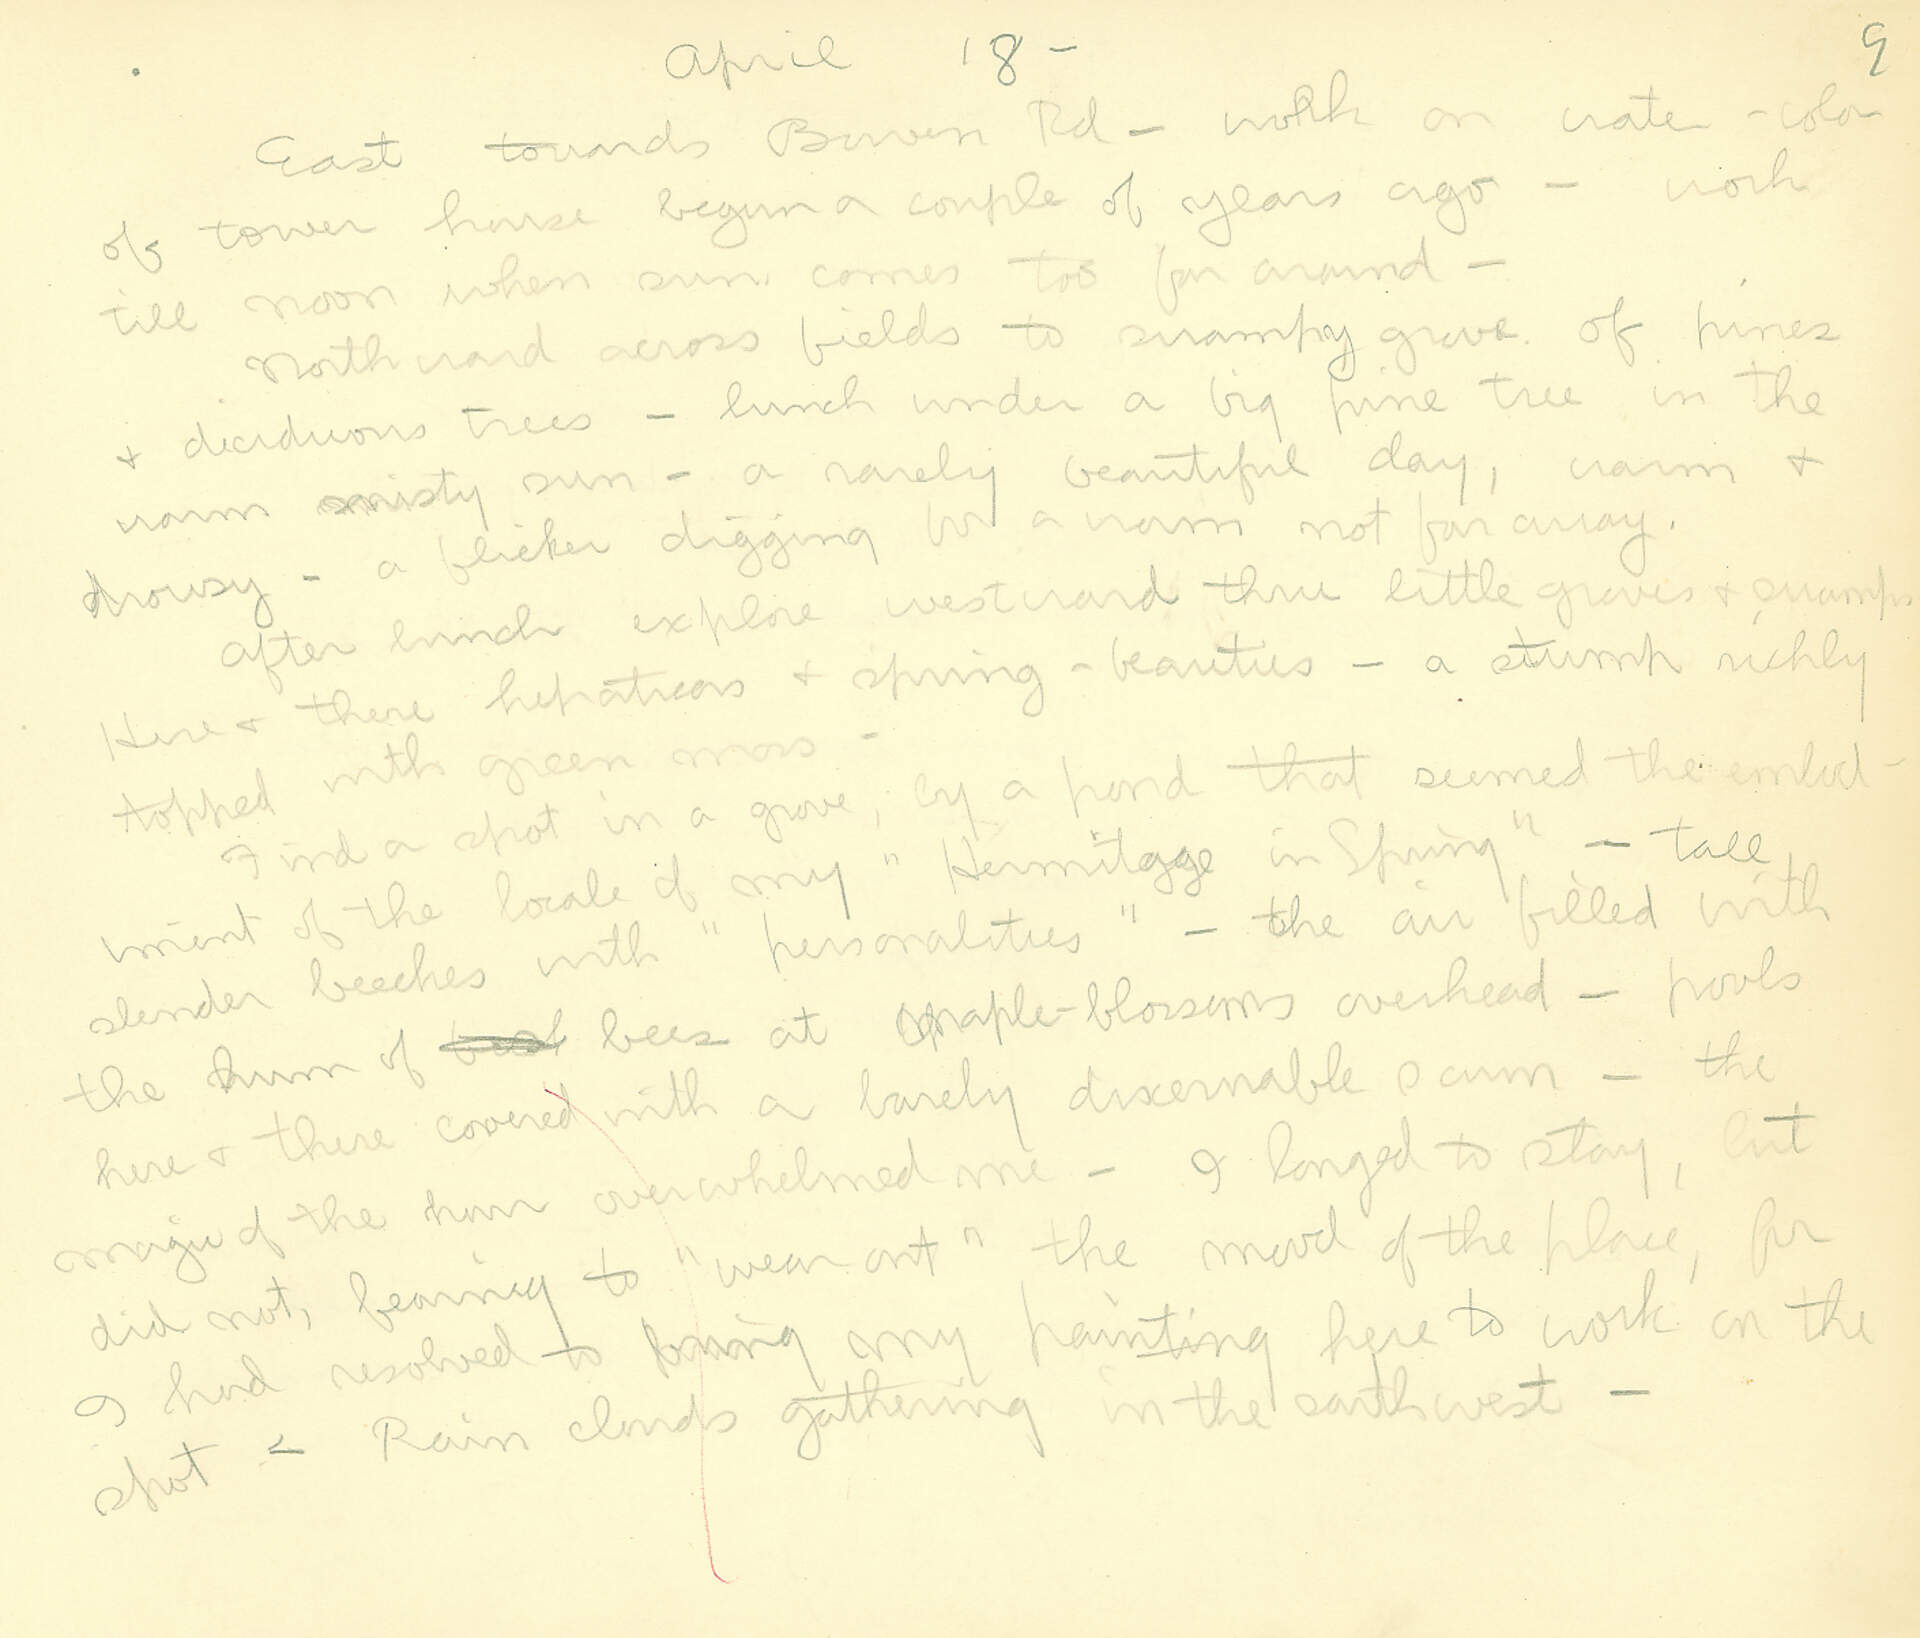 April 18 -
9
East towards Bowen Rd - work on water-color
of tower house begun a couple of years ago - work
till noon when sun comes too far around -
Northward across fields to swampy grove of pines
& deciduous trees - lunch under a big pine tree in the
warm misty sun - a rarely beautiful day, warm &
drowsy - a flicker digging for a worm not far away.
After lunch explore westward thru little groves & swamps
Here & there hepaticas & spring-beauties - a stump richly
topped with green moss -
Find a spot in a grove, by a pond that seemed the embod-
iment of the locale of my "Hermitage in Spring" - tall
slender beeches with "personalities" - the air filled with
the hum of bees at maple-blossoms overhead - pools
here & there covered with a barely discernable scum - the
magic of the hour overwhelmed me - I longed to stay, but
did not, fearing to "wear out" the mood of the place, for
I had resolved to bring my painting here to work on the
spot - Rain clouds gathering in the southwest -